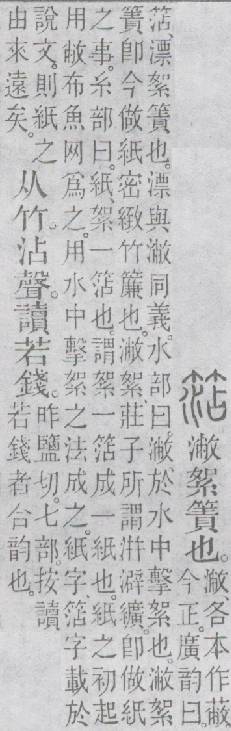 𥮒潎絮簀也。潎、各本作蔽。
今正。廣韵曰。
𥮒、漂絮簀也。漂與潎同義。水部曰。潎、於水中擊絮也。潎絮
簀卽今做紙密緻竹簾也。潎絮、莊子所謂洴澼纊。卽做紙
之事。糸部曰。紙、絮一𥮒也。謂絮一𥮒成一紙也。紙之初起
用敝布魚网爲之。用水中擊絮之法成之。紙字𥮒字載於
說文。則紙之
由來遠矣。
从竹沾聲。讀若錢。
昨鹽切。七部。按讀
若錢者合韵也。